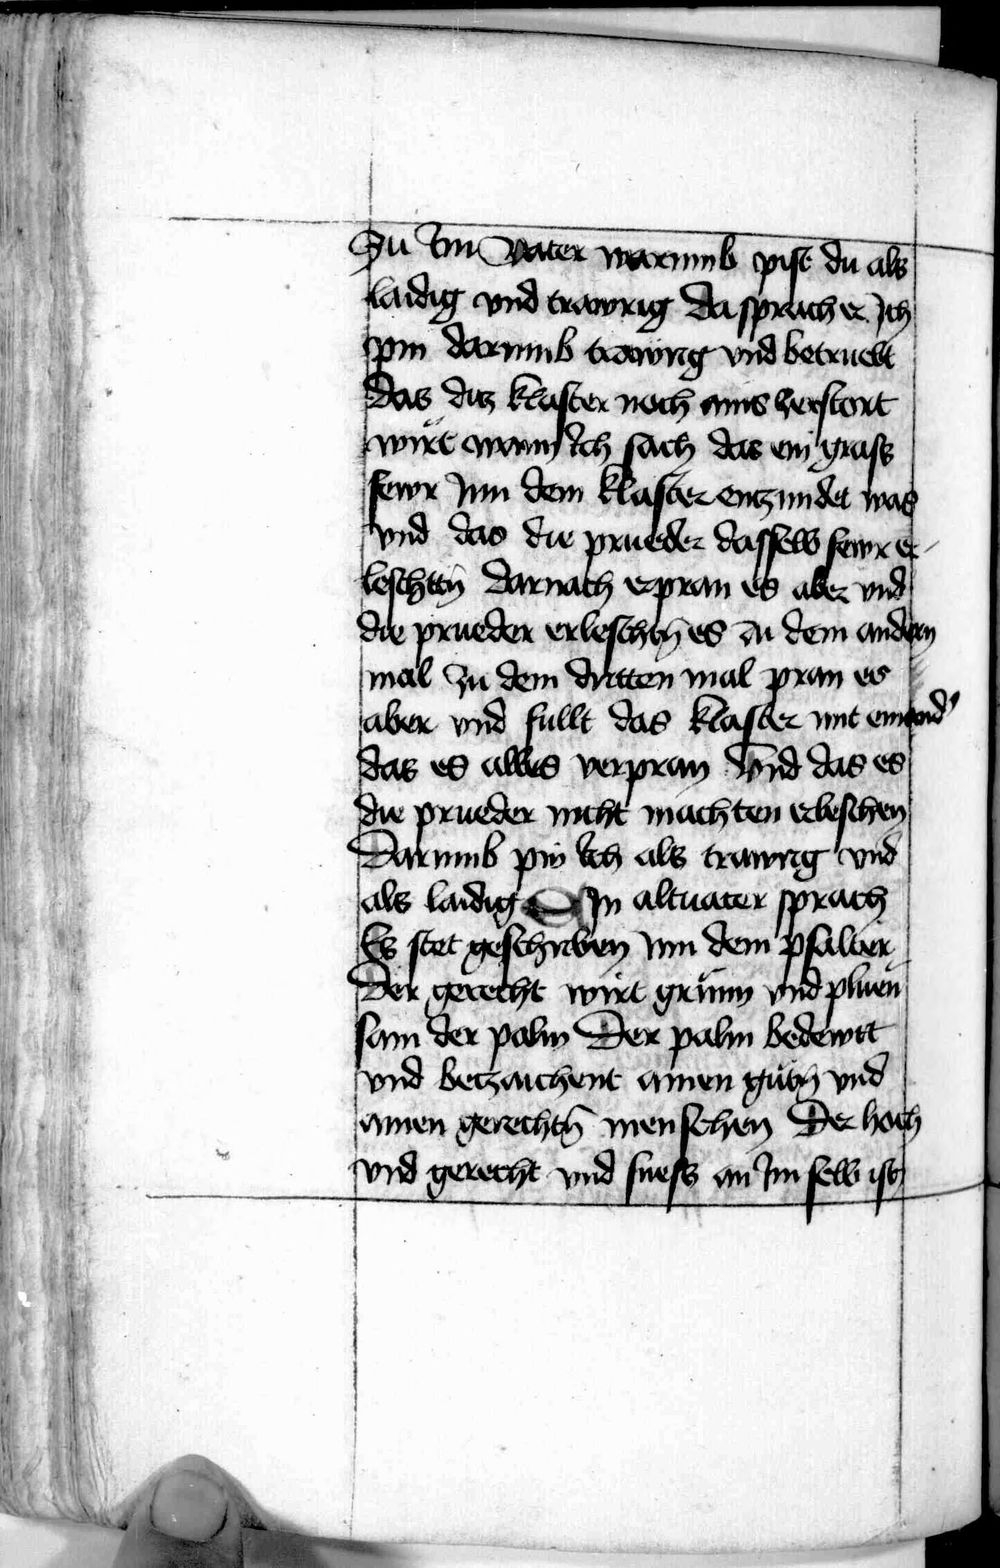 Zu Im Vater warumb pist du als
laidig vnd trawrig Da sprach er Ich
pin darumb trawrig vnd betruebt
Das ditz klaster noch ains zerstort
wirt wann Ich sach das ein grass
fewr Inn dem klaster entzundet was
vnd das die prueder dasselb fewr er
leschttn̄ darnach erpran es aber vnd
die prueder erleschtn̄ es zu dem andern
mal zu dem dritten mal pran es
aber vnd fullt das klaster mit einand'
das es alles verpran Vnd das es
die prueder nicht machten erleschen
Darumb pin Ich als trawrig vnd
als laidig EIn altuater sprach
Es stet geschriben Inn dem psalter
Der gerecht wirt grünn vnd pluen
sam der palm Der palm bedewtt
vnd betzaichent ainen gütn̄ vnd
ainen gerechtn̄ menschen Der hoch
vnd gerecht vnd suess an Im selb ist